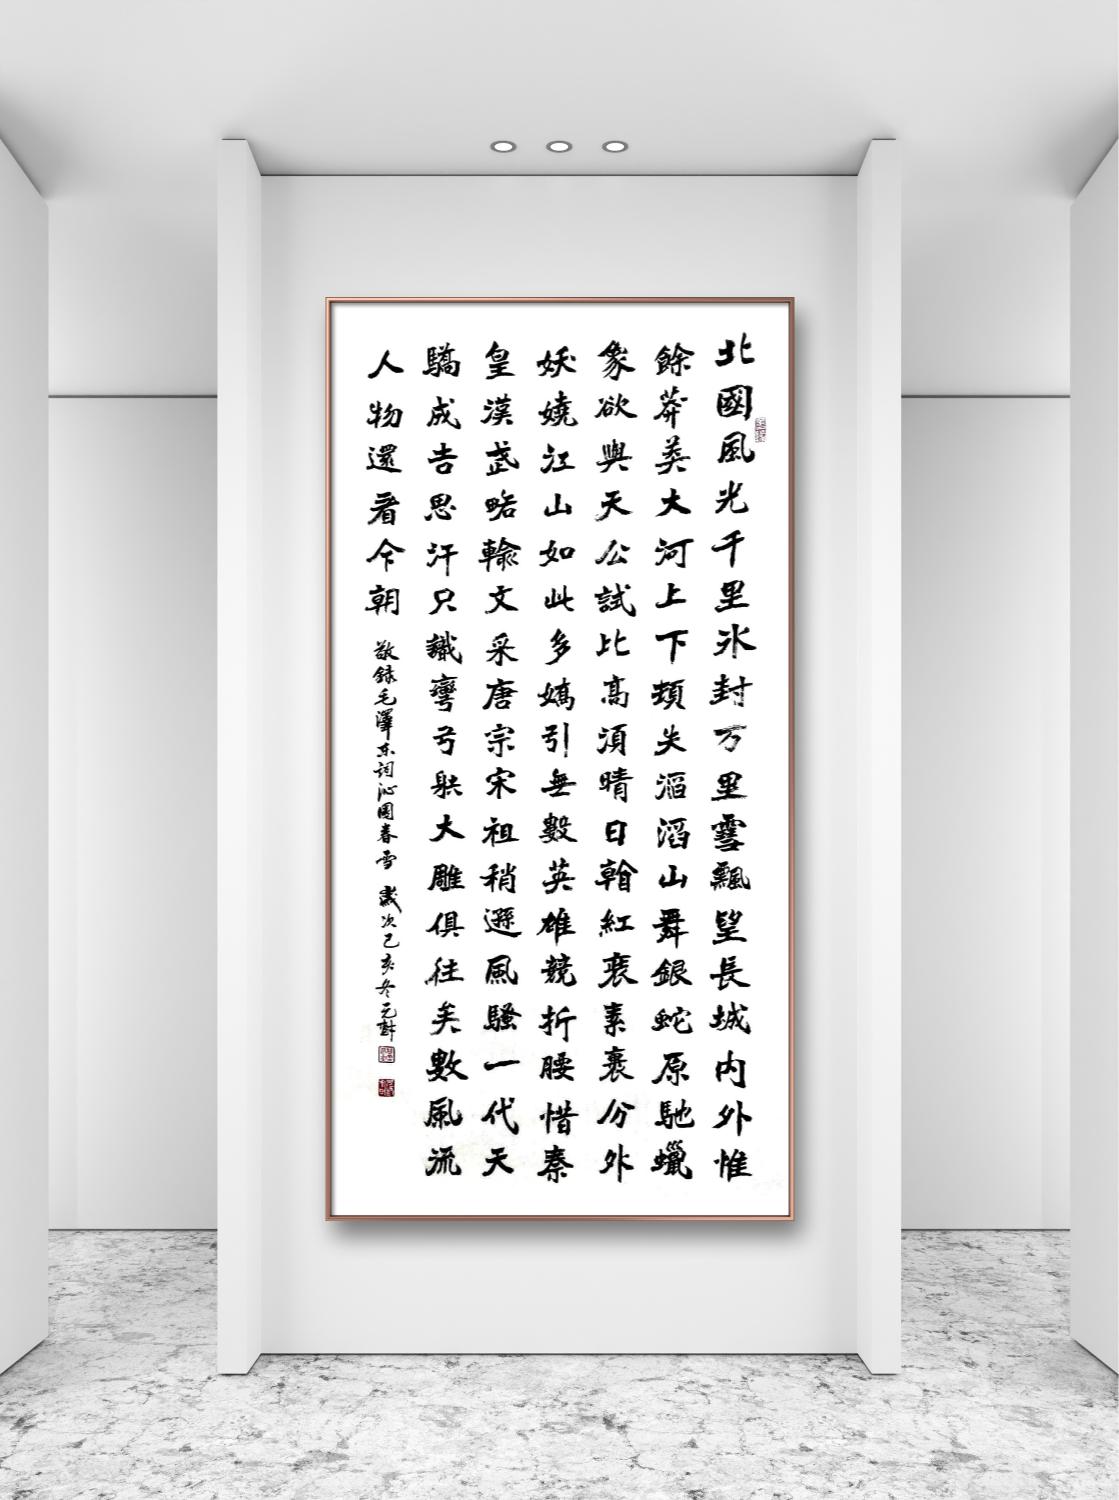 北國風光千里氷封万里雪飄望長城内外惟
餘莽莽大河上下頓失滔滔山舞銀蛇原馳蠟
象欲與天公試比高須晴日看紅裝素裹分外
妖嬈江山如此多嬌引無數英雄競折腰惜秦
皇漢武略輸文采唐宗宋祖稍遜風騷一代天
驕成吉思汗只識彎弓射大雕俱往矣數風流
人物還看今朝 敬録毛澤东詞沁園春雪 歲次己亥冬元